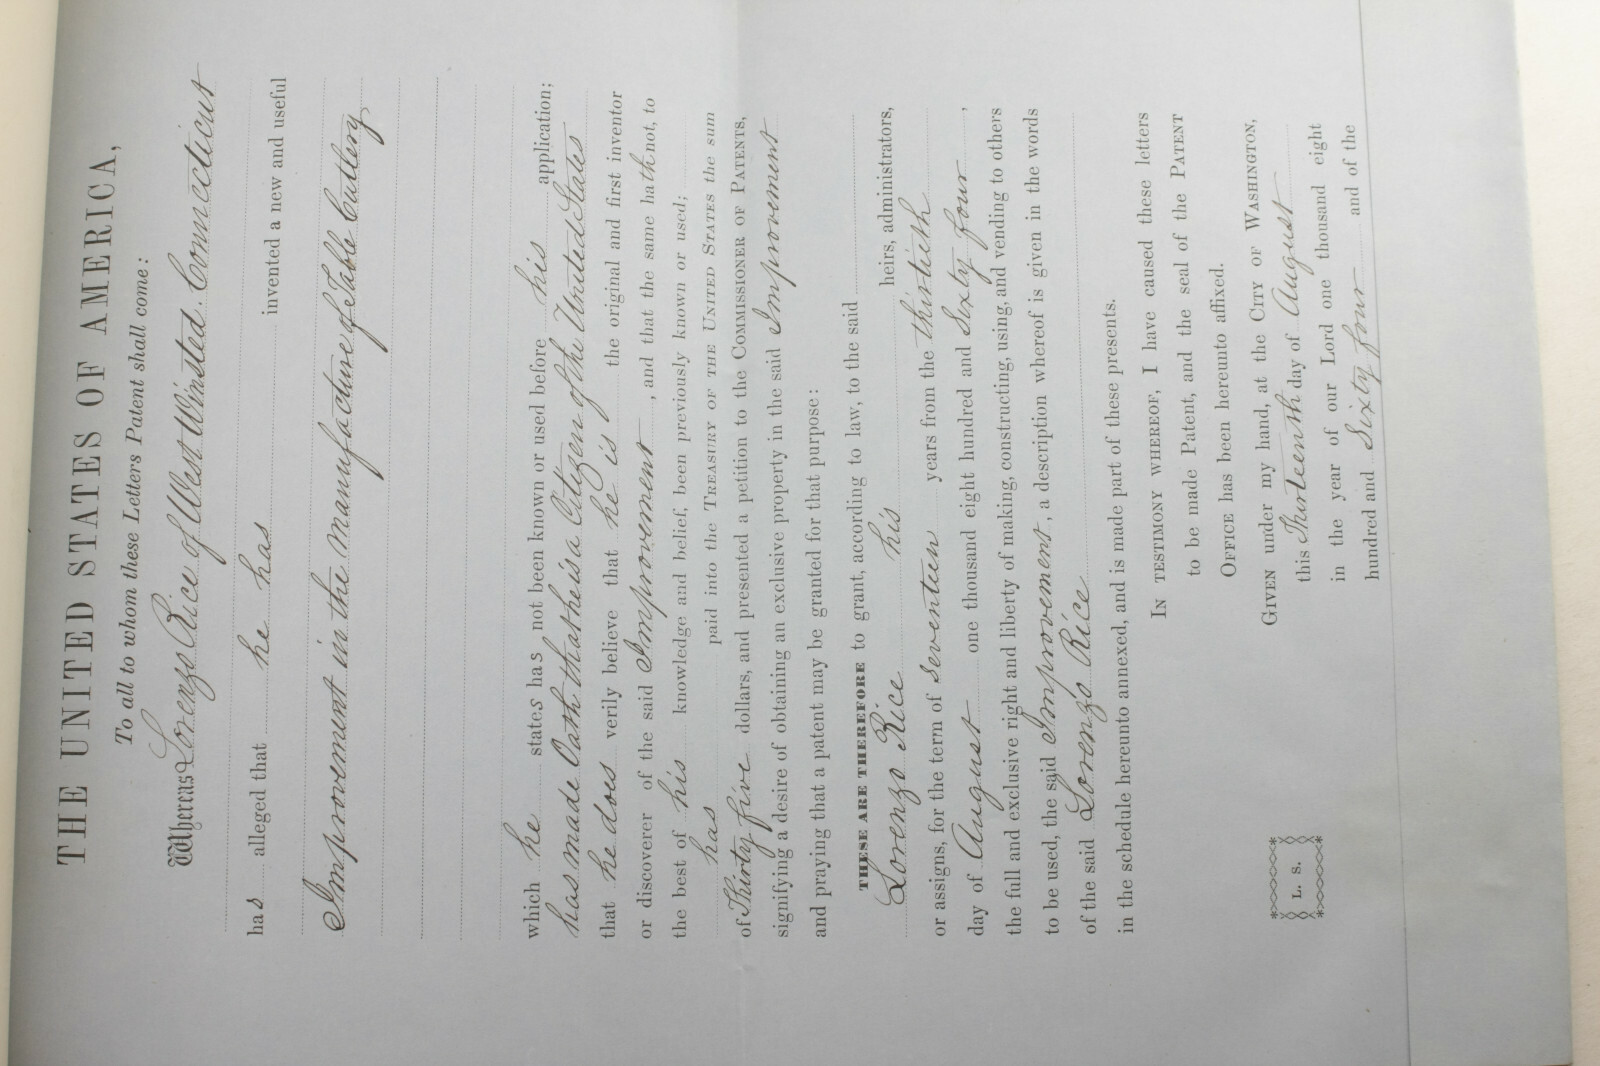 THE UNITED STATES OF AMERICA,
To all to whom these Letters Patent shall come:
Whereas Lorenzo Rice of West Winsted. Connecticut
has alleged that he has invented a new and useful
Improvement in the manufacture of Table Cutlery,
which he states has not been known or used before his application;
has made Oath that he is a Citizen of the United States
that he does verily believe that he is the original and first inventor
or discoverer of the said Improvement, and that the same hath not, to
the best of his knowledge and belief, been previously known or used;
has paid into the TREASURY OF THE UNITED STATES the sum
of Thirty five dollars, and presented a petition to the COMMISSIONER OF PATENTS,
signifying a desire of obtaining an exclusive property in the said Improvement
and praying that a patent may be granted for that purpose:
THESE ARE THEREFORE to grant, according to law, to the said
Lorenzo Rice his heirs, administrators,
or assigns, for the term of seventeen years from the thirtieth
day of August one thousand eight hundred and Sixty four,
the full and exclusive right and liberty of making, constructing, using, and vending to others
to be used, the said Improvement, a description whereof is given in the words
of the said Lorenzo Rice
in the schedule hereunto annexed, and is made part of these presents.
IN TESTIMONY WHEREOF, I have caused these letters
to be made Patent, and the seal of the PATENT
OFFICE has been hereunto affixed.
GIVEN under my hand, at the CITY OF WASHINGTON,
this Thirteenth day of August
in the year of our Lord one thousand eight
hundred and Sixty four and of the
L. S.